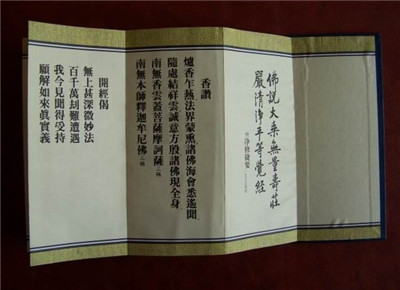 佛說大乘無量壽莊
嚴清淨平等覺經
香讚
爐香乍爇法界蒙熏諸佛海會悉遙聞
隨處結祥雲誠意方殷諸佛現全身
南無香雲蓋菩薩摩訶薩三稱
南無本師釋迦牟尼佛三稱
開經偈
無上甚深微妙法
百千萬劫難遭遇
我今見聞得受持
願解如來真實義